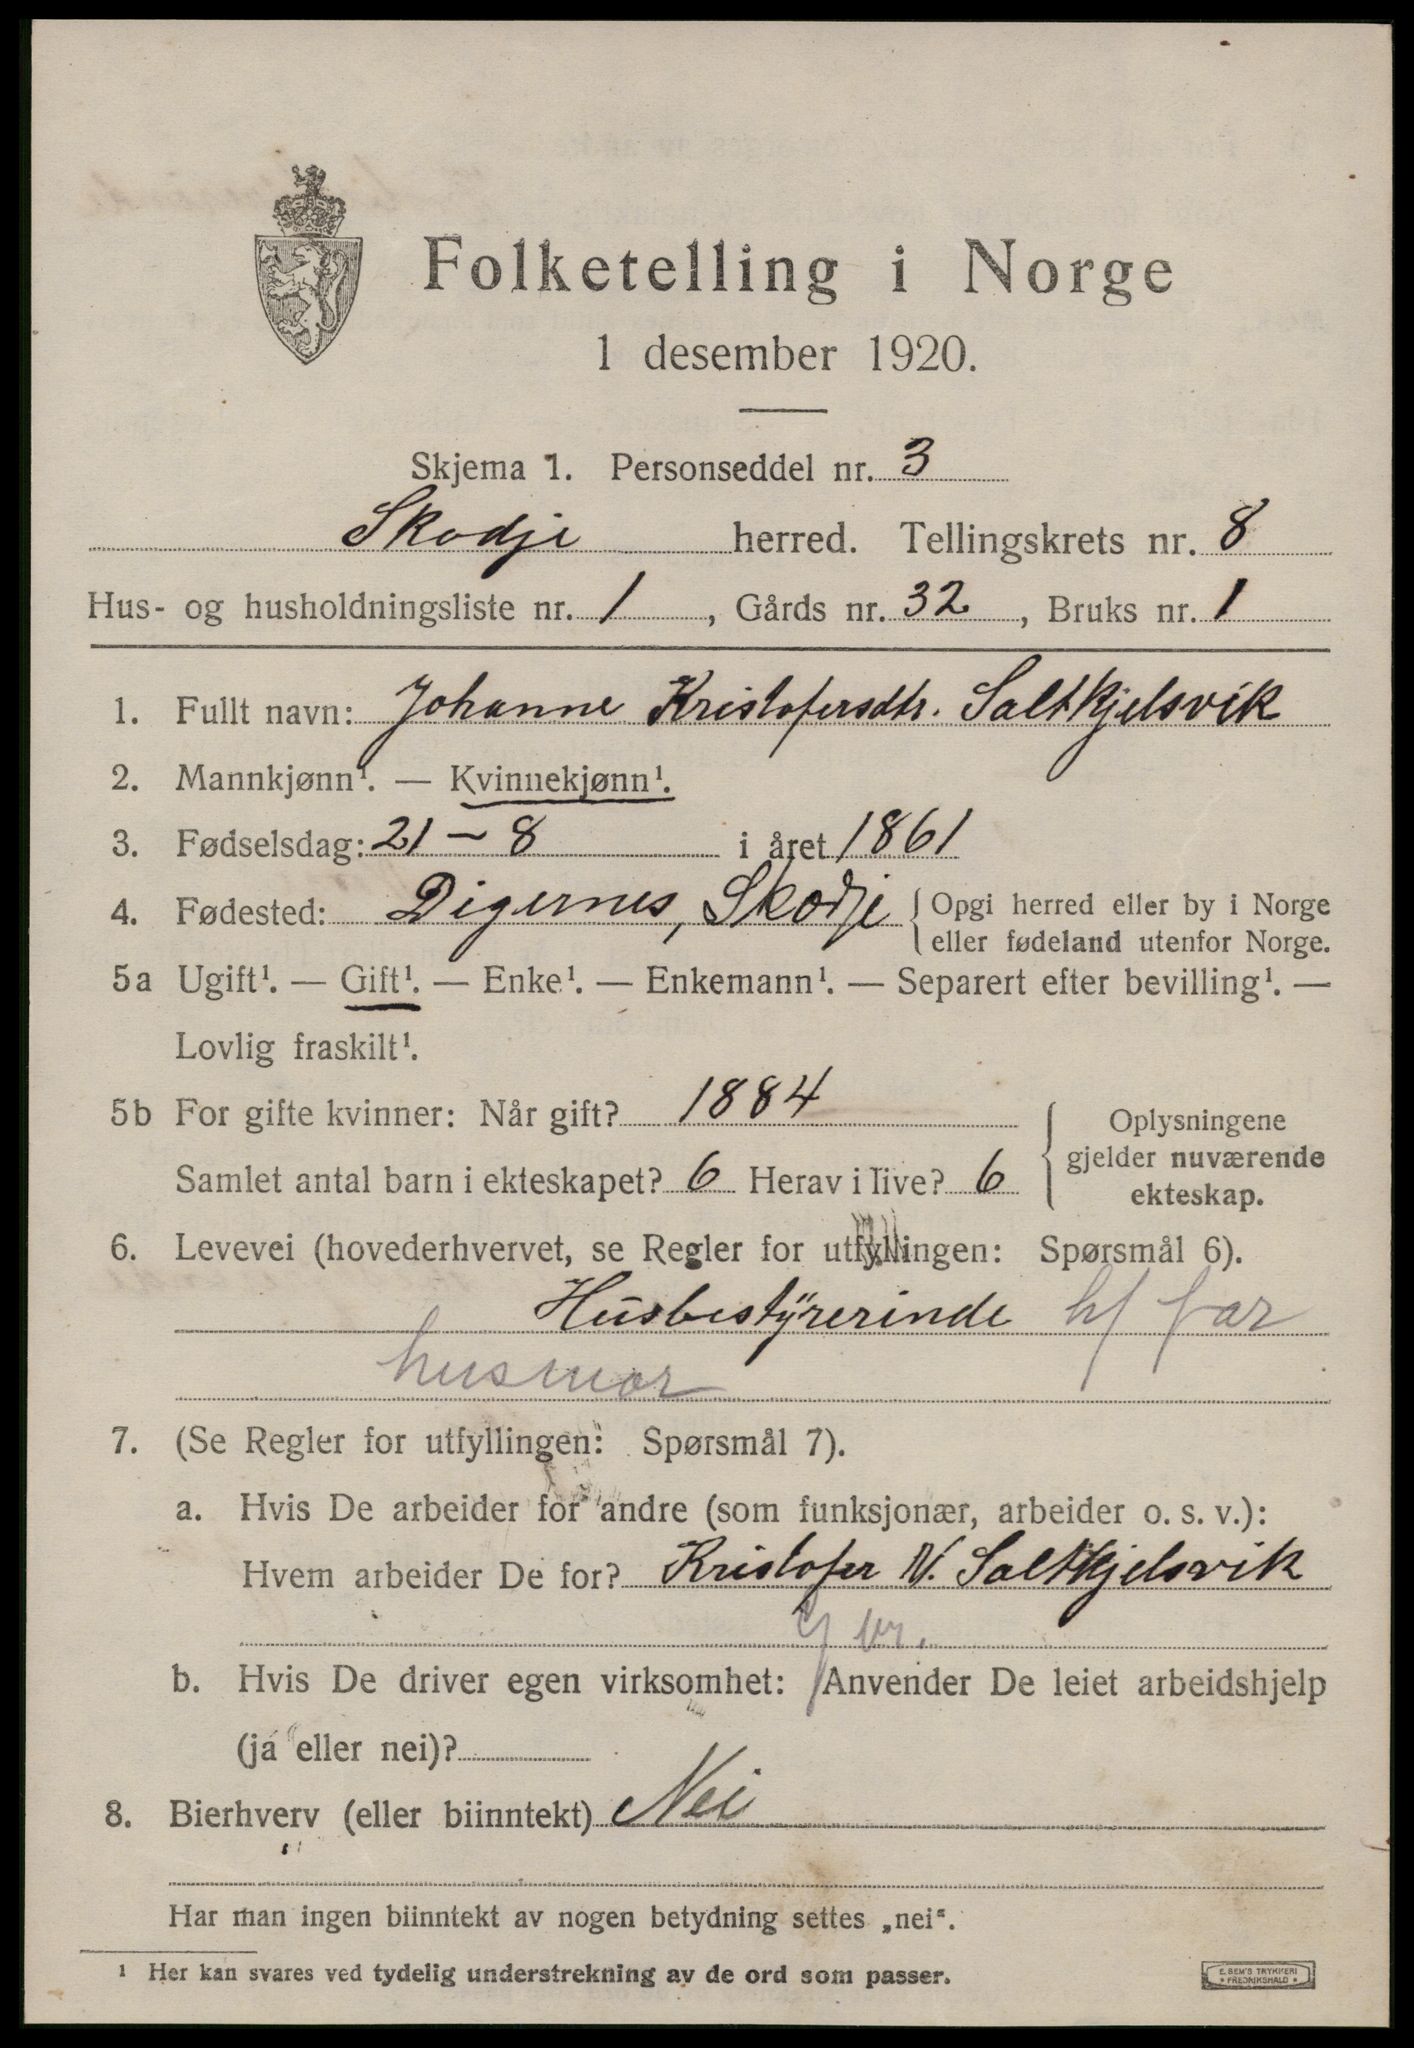 Folketelling i Norge
1 desember 1920.
Skjema 1. Personseddel nr. 3
Skodje herred. Tellingskrets nr. 8
Hus- og husholdningsliste nr. 1, Gårds nr. 32, Bruks nr. 1
1. Fullt navn: Johanne Kristofersdtr. Saltkjelsvik
2. Mannkjønn¹. — Kvinnekjønn¹.
3. Fødselsdag: 21 - 8 i året 1861
4. Fødested: Digernes, Skodje { Opgi herred eller by i Norge
eller fødeland utenfor Norge.
5a Ugift¹. — Gift¹. — Enke¹. — Enkemann¹. — Separert efter bevilling¹. —
Lovlig fraskilt¹.
5b For gifte kvinner: Når gift? 1884
Samlet antal barn i ekteskapet? 6 Herav i live? 6
Oplysningene
gjelder nuværende
ekteskap.
6. Levevei (hovederhvervet, se Regler for utfyllingen: Spørsmål 6).
Husbestÿrerinde h/ far
husmor
7. (Se Regler for utfyllingen: Spørsmål 7).
a. Hvis De arbeider for andre (som funksjonær, arbeider o. s. v.):
Hvem arbeider De for? Kristofer N. Saltkjelsvik
b. Hvis De driver egen virksomhet: Anvender De leiet arbeidshjelp
(ja eller nei)?
8. Bierhverv (eller biinntekt) Nei
Har man ingen biinntekt av nogen betydning settes „nei“.
¹ Her kan svares ved tydelig understrekning av de ord som passer.
E. SEM'S TRYKKERI
* FREDRIKSHALD *